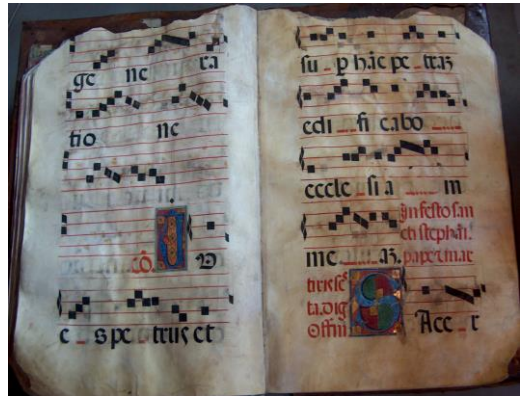 ge ne ra
tio ne
cō. D
e s pe trus et
su p hāc pe traʒ
edi fi cabo
eccle si a m
me aʒ. In festo san
cti stephani.
pape et mar
tiris sc̄
ta. Dig
Offm̄ S Ace r